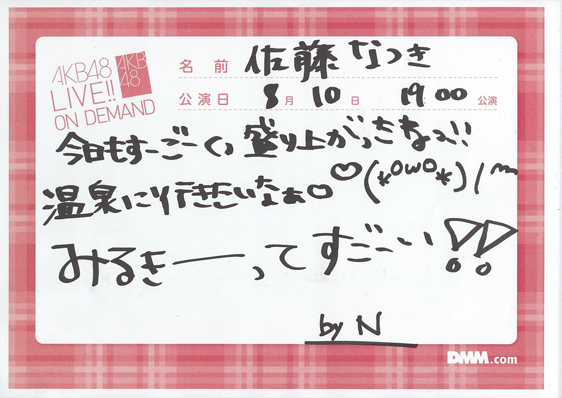 AKB48
LIVE!!
ON DEMAND
AKB
48
名前 佐藤なつき
公演日 8月10日 19:00公演
今日もすーごーくっ盛り上がっったなっ!!
温泉に行きたいなぁ♡ ♡(*°ω°*)/~
みるきーーってすごーい!!
by N
DMM.com